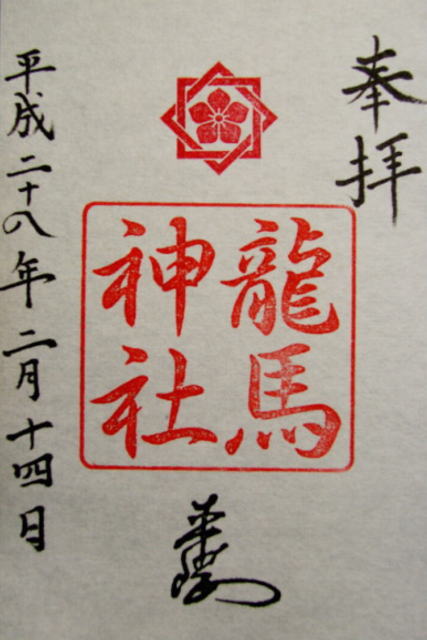 奉拝
龍馬
神社
平成二十八年二月十四日